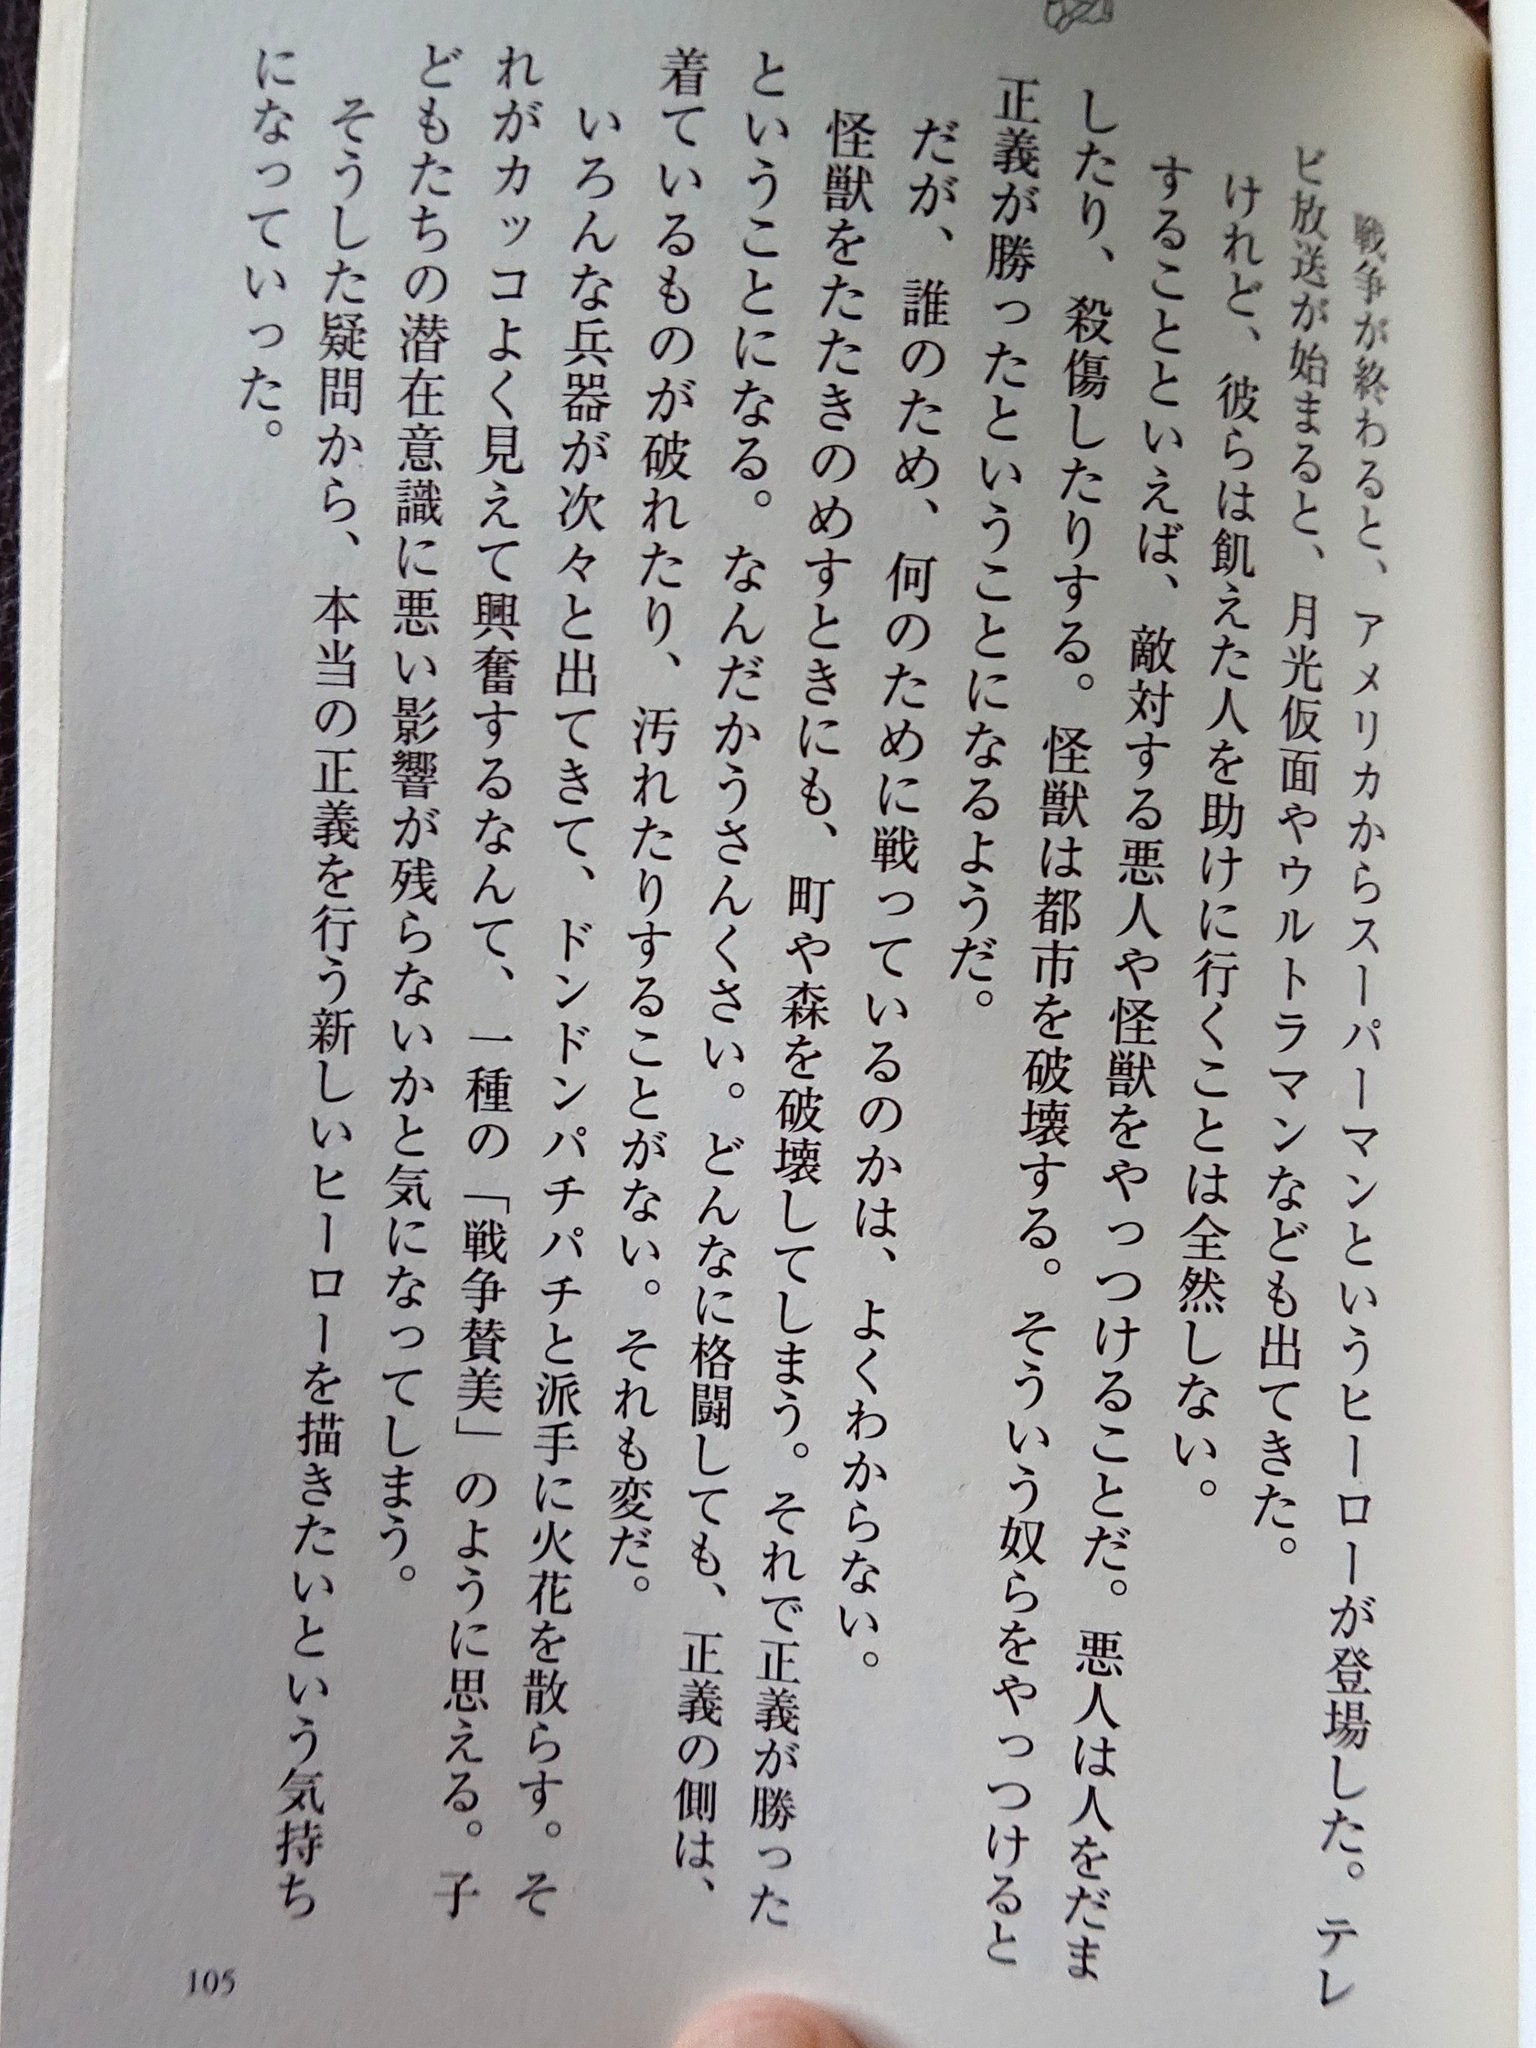 戦争が終わると、アメリカからスーパーマンというヒーローが登場した。テレ
ビ放送が始まると、月光仮面やウルトラマンなども出てきた。
けれど、彼らは飢えた人を助けに行くことは全然しない。
することといえば、敵対する悪人や怪獣をやっつけることだ。悪人は人をだま
したり、殺傷したりする。怪獣は都市を破壊する。そういう奴らをやっつけると
正義が勝ったということになるようだ。
だが、誰のため、何のために戦っているのかは、よくわからない。
怪獣をたたきのめすときにも、町や森を破壊してしまう。それで正義が勝った
ということになる。なんだかうさんくさい。どんなに格闘しても、正義の側は、
着ているものが破れたり、汚れたりすることがない。それも変だ。
いろんな兵器が次々と出てきて、ドンドンパチパチと派手に火花を散らす。そ
れがカッコよく見えて興奮するなんて、一種の「戦争賛美」のように思える。子
どもたちの潜在意識に悪い影響が残らないかと気になってしまう。
そうした疑問から、本当の正義を行う新しいヒーローを描きたいという気持ち
になっていった。
105